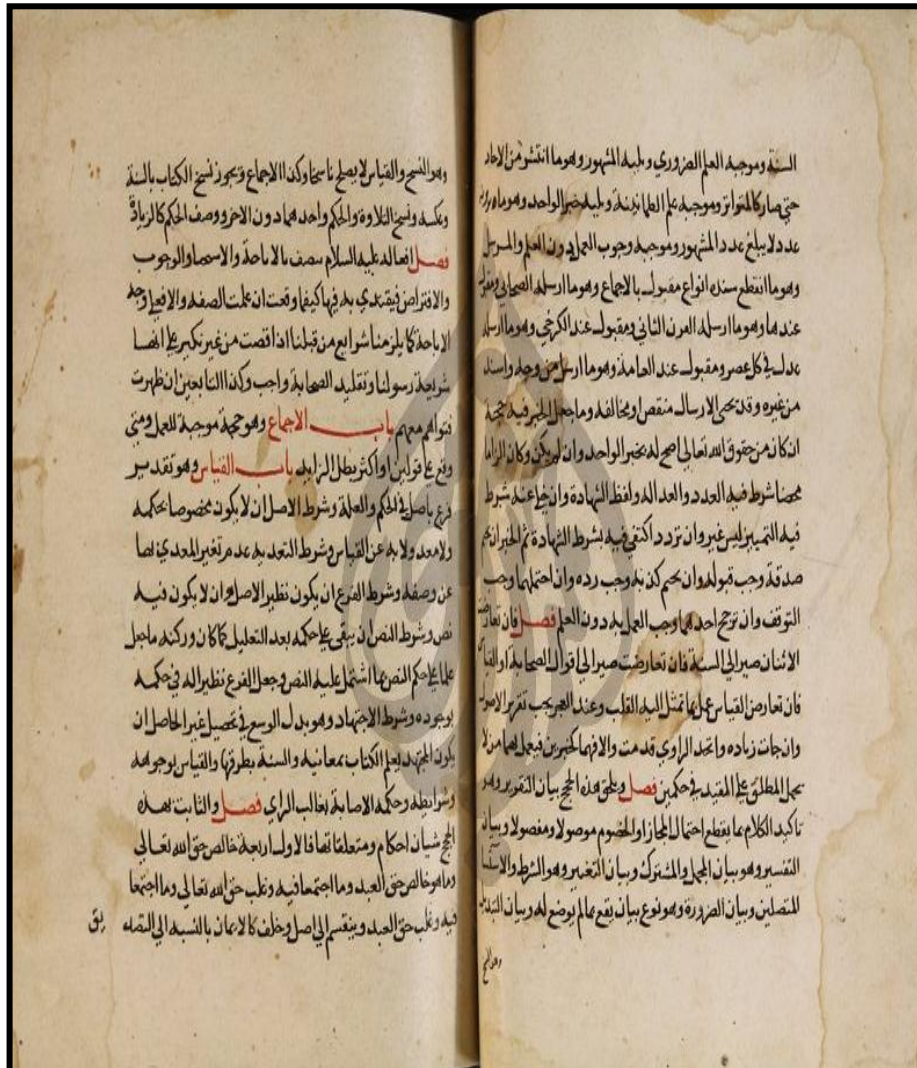 السنة وموجبه العلم الضروري ويليه المشهور وهو ما انتشر من الاحاد
حتى صار كالمتواتر وموجبه علم الطمانينة ويليه خبر الواحد وهو ما
عدد لا يبلغ عدد المشهور وموجبه وجوب العمل دون العلم والمرسل
وهو ما انقطع سنده انواع مقبول بالاجماع وهو ما ارسله الصحابي ومقبول
عندها وهو ما ارسله القرن الثاني ومقبول عند الكرخي وهو ما ارسله
عدل في كل عصر ومقبول عند العامة وهو ما ارسل من وجه واسند
من غيره وقد يحى الارسال منقص او مخالفه وما جعل الخبر فيه حجة
ان كان من حقوق الله تعالى اصح له بخبر الواحد وان لم يكن وكان الزاما
محضا شرط فيه العدد والعداله ولفظ الشهادة وان خلى عنه شرط
فيه التمييز ليس غير وان تردد اكتفى فيه بشرط الشهادة ثم الخبر ان
صدقه وجب قبوله وان بحكم كذبه وجب رده وان احتملهما وجب
التوقف وان ترجح احدهما وجب العمل به دون العلم فصل فان تعارضت
الاثنان صير الى السنة فان تعارضت صير الى اقوال الصحابة او القياس
فان تعارض القياس عمل بما تمثل اليه القلب وعند العجز يجب تقرير الاصول
وان جات زياده واتحد الراوي قدمت والا فهما كخبرين فيعمل بهما من لا
يحمل المطلق على المقيد في حكمين فصل ويلحق هذه الحجج بيان التقرير وهو
تاكيد الكلام بما يقطع احتمال المجاز او الخصوم موصولا ومفصولا وبيان
التفسير وهو بيان المجمل والمشترك وبيان التغيير وهو الشرط والاستثنا
المتصلين وبيان الضرورة وهو نوع بيان يقع بمالم يوضع له وبيان التبديل
وهو النسخ
وهو النسخ والقياس لا يصلح ناسخا وكذا الاجماع ويجوز نسخ الكتاب بالسنة
وعكسه ونسخ التلاوة والحكم واحدهما دون الاخر ووصف الحكم كالزيادة
فصل افعاله عليه السلام بالاباحة والاستحبا والوجوب
والافتراض فيقتدي به فيها كيفما وقعت ان علمت الصفه والا فعلى وجه
الاباحة كما يلزمنا شرايع من قبلنا اذا قصت من غير نكير على انها
شريعة رسولنا وتقليد الصحابة واجب وكذا التابعين ان ظهرت
فتواهم معهم باب الاجماع وهو حجة موجبة للعمل ومتى
وقع على قولين او اكثر بطل الزايد باب القياس وهو تقدير
فرع باصل في الحكم والعلة وشرط الاصل ان لا يكون مخصوصا بحكمه
ولا معدولا به عن القياس وشرط التعديه عدم تغير المعدي نصا
عن وصفه وشرط الفرع ان يكون نظير الاصل وان لا يكون فيه
نص وشرط النص ان يبقى على حكمه بعد التعليل كما كان وركنه ما جعل
علما على حكم النص مما اشتمل عليه النص وجعل الفرع نظيرا له في حكمه
بوجوده وشرط الاجتهاد وهو بدل الوسع في تحصيل غير الحاصل ان
يكون المجتهد يعلم الكتاب بمعانيه والسنة بطرقها والقياس بوجوهه
وشرايطه وحكمه الاصابة بغالب الراي فصل والثابت بهذه
الحجج شيان احكام ومتعلقاتها فالاول اربعة خالص حق الله تعالى
وما هو خالص حق العبد وما اجتمعا فيه وغلب حق الله تعالى وما اجتمعا
فيه وغلب حق العبد وينقسم الى اصل وخلف كالايمان بالنسبه الى التصد
يق